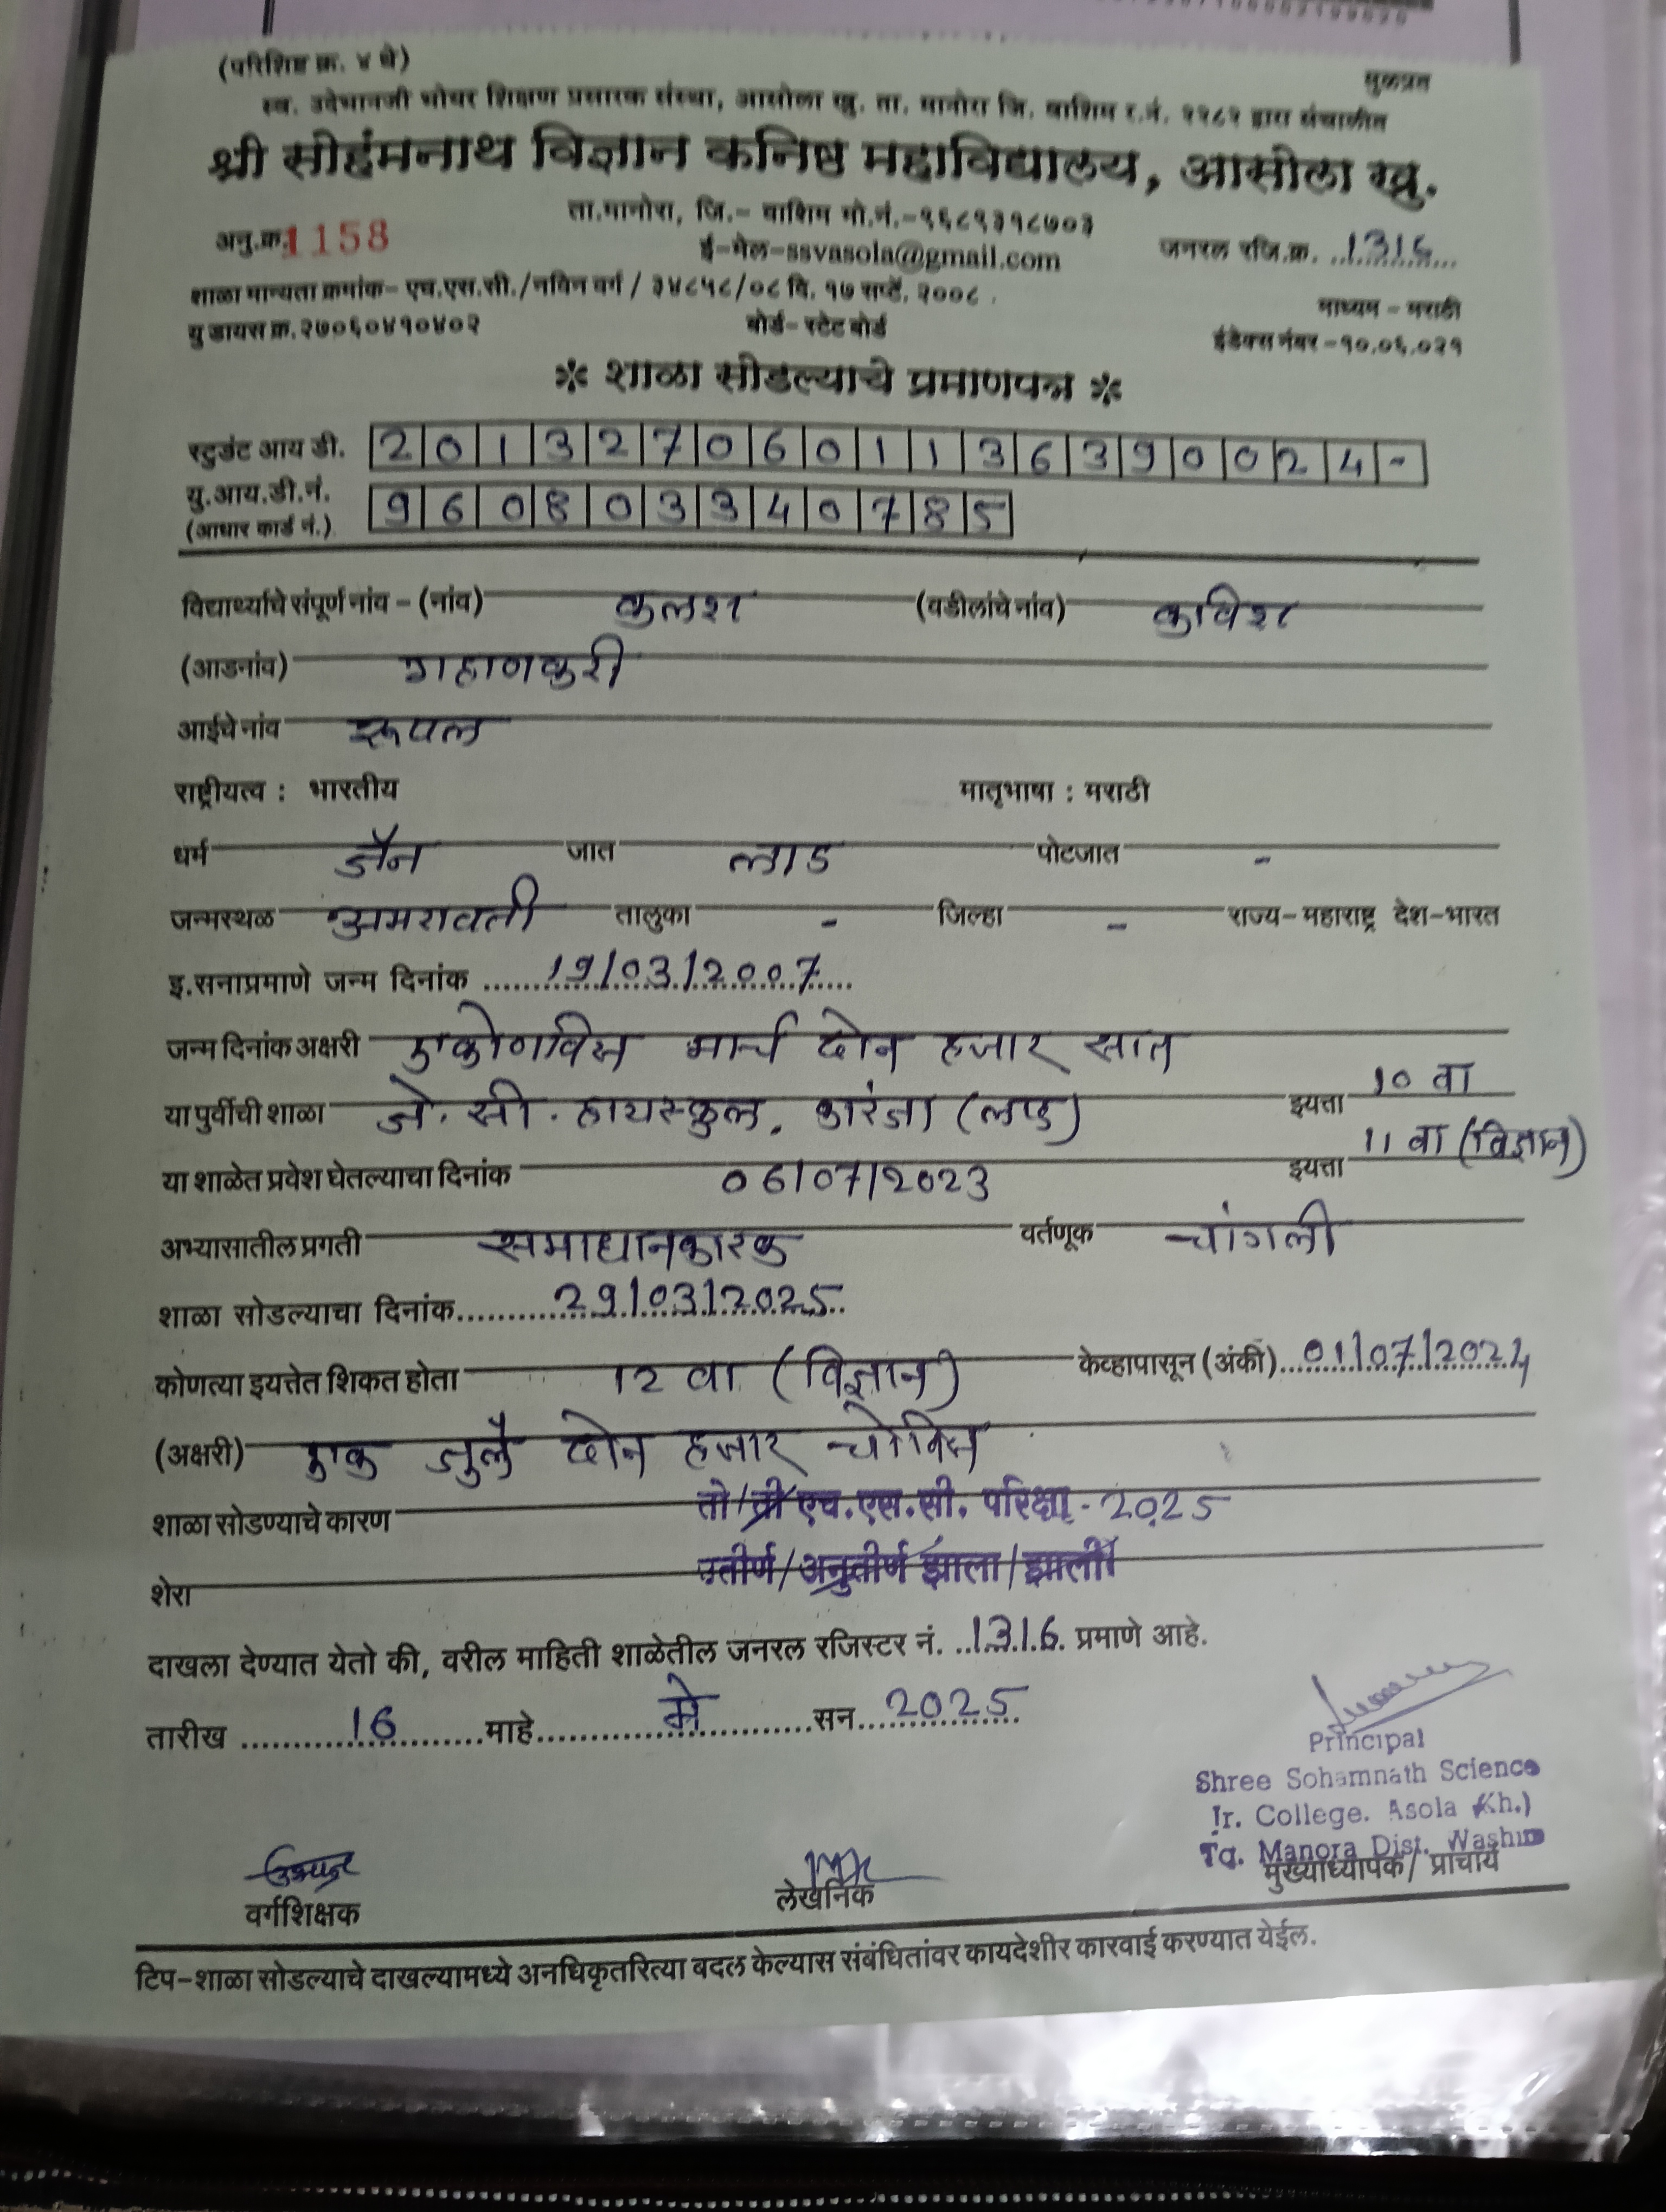 (परिशिष्ट क्र. ४ थे)
मुळप्रत
स्व. उदेभानजी भोयर शिक्षण प्रसारक संस्था, आसोला खु. ता. मानोरा जि. वाशिम र.नं. २२८२ द्वारा संचालीत
श्री सोहंमनाथ विज्ञान कनिष्ठ महाविद्यालय, आसोला खु.
ता.मानोरा, जि.- वाशिम मो.नं.-९६८९३१८७०३
अनु.क्र. 1158
ई-मेल-ssvasola@gmail.com
जनरल रजि.क्र. 1316
शाळा मान्यता क्रमांक- एच.एस.सी./नविन वर्ग / ३४८५८/०८ दि. १७ सप्टें. २००८ .
माध्यम - मराठी
यु डायस क्र.२७०६०४१०४०२
बोर्ड- स्टेट बोर्ड
इंडेक्स नंबर -१०.०६.०२१
* शाळा सोडल्याचे प्रमाणपत्र *
स्टुडंट आय डी. 2 0 1 3 2 7 0 6 0 1 1 3 6 3 9 0 0 2 4 -
यु.आय.डी.नं. 9 6 0 8 0 3 3 4 0 7 8 5
(आधार कार्ड नं.)
विद्यार्थ्याचे संपूर्ण नांव - (नांव) कुलश (वडीलांचे नांव) कविश
(आडनांव) गहाणकरी
आईचे नांव रूपल
राष्ट्रीयत्व : भारतीय मातृभाषा : मराठी
धर्म जैन जात लाड पोटजात -
जन्मस्थळ अमरावती तालुका - जिल्हा - राज्य-महाराष्ट्र देश-भारत
इ.सनाप्रमाणे जन्म दिनांक 19/03/2007
जन्म दिनांक अक्षरी एकोणविस मार्च दोन हजार सात
या पुर्वीची शाळा जे. सी. हायस्कुल, कारंजा (लाड) इयत्ता 10 वा
या शाळेत प्रवेश घेतल्याचा दिनांक 06/07/2023 इयत्ता 11 वा (विज्ञान)
अभ्यासातील प्रगती समाधानकारक वर्तणूक चांगली
शाळा सोडल्याचा दिनांक 29/03/2025
कोणत्या इयत्तेत शिकत होता 12 वा (विज्ञान) केव्हापासून (अंकी) 01/07/2024
(अक्षरी) एक जुलै दोन हजार चोविस
शाळा सोडण्याचे कारण तो/ती एच.एस.सी. परिक्षा - 2025
शेरा उतीर्ण/अनुतीर्ण झाला/झाली
दाखला देण्यात येतो की, वरील माहिती शाळेतील जनरल रजिस्टर नं. 1316 प्रमाणे आहे.
तारीख 16 माहे मे सन 2025
Principal
Shree Sohamnath Science
Jr. College. Asola (Kh.)
Tq. Manora Dist. Washim
वर्गशिक्षक लेखनिक मुख्याध्यापक/ प्राचार्य
टिप-शाळा सोडल्याचे दाखल्यामध्ये अनधिकृतरित्या बदल केल्यास संबंधितांवर कायदेशीर कारवाई करण्यात येईल.